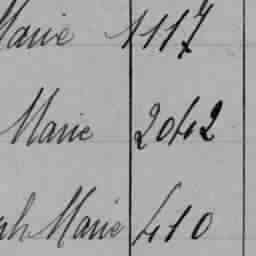 Marie 1117
Marie 2042
Marie 410